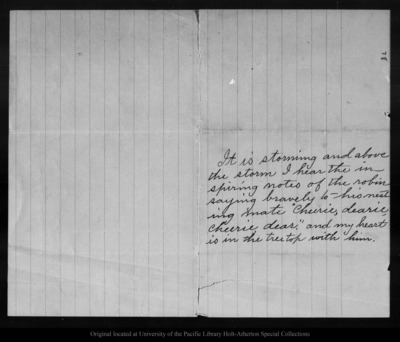 It is storming and above
the storm I hear the in
spiring notes of the robin
saying bravely to his nest
ing mate "Cheerie, dearie
cheerie, dear," and my heart
is in the treetop with him.
Original located at University of the Pacific Library Holt-Atherton Special Collections